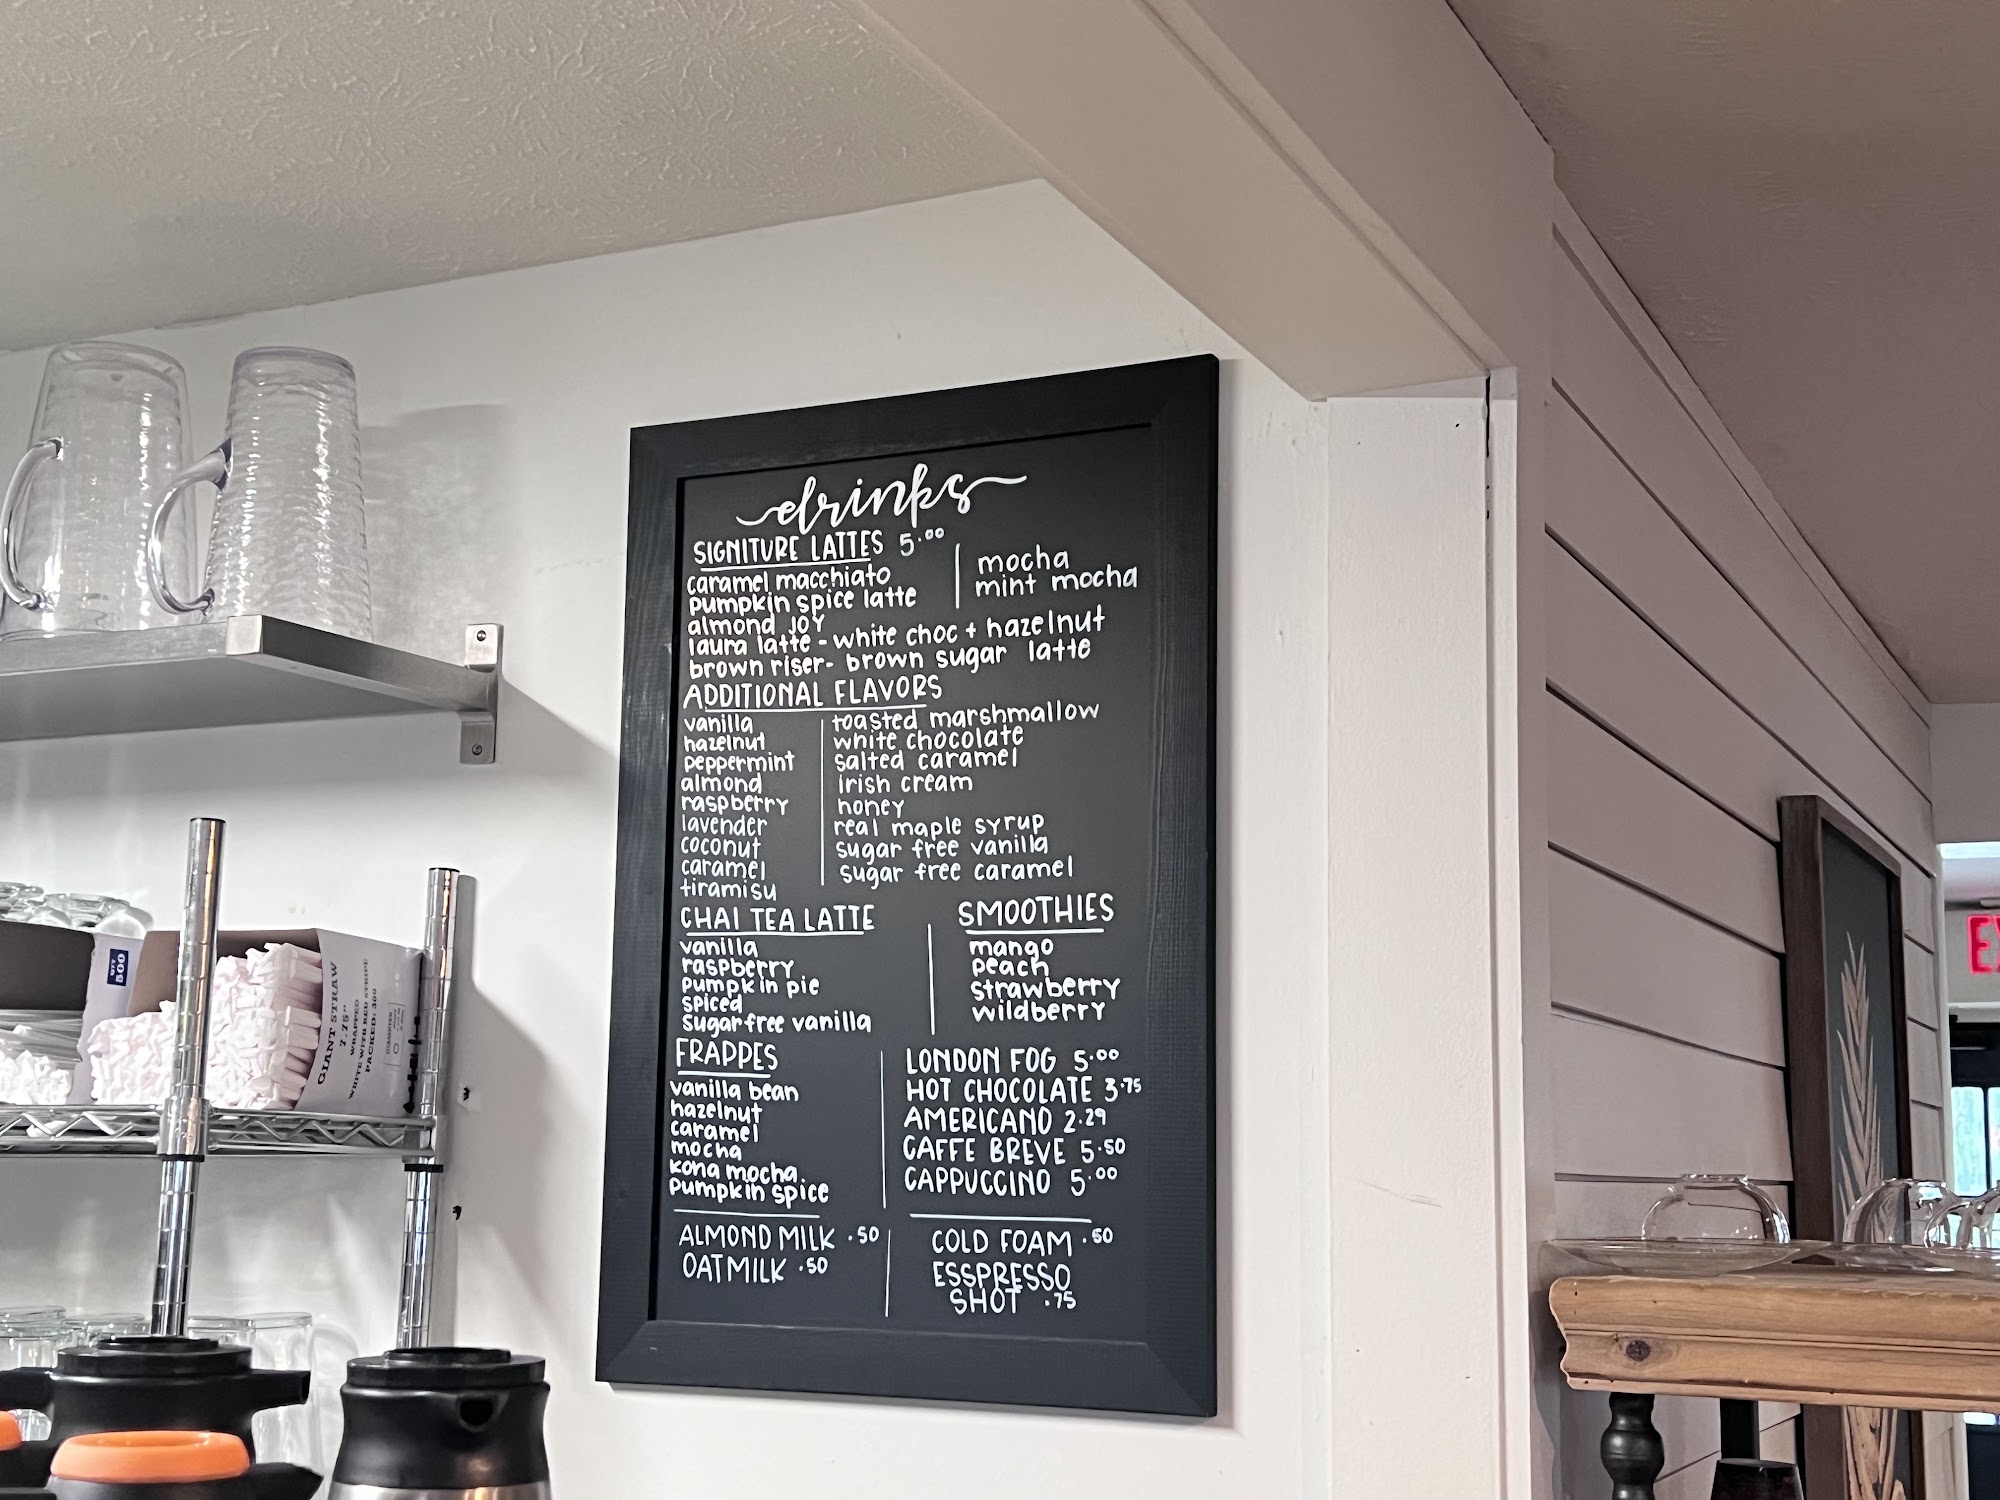 drinks
SIGNITURE LATTES 5.00
caramel macchiato
pumpkin spice latte
almond joy
mocha
mint mocha
laura latte - white choc + hazelnut
brown riser- brown sugar latte
ADDITIONAL FLAVORS
vanilla
hazelnut
peppermint
almond
raspberry
lavender
coconut
caramel
tiramisu
toasted marshmallow
white chocolate
salted caramel
irish cream
honey
real maple syrup
sugar free vanilla
sugar free caramel
CHAI TEA LATTE
vanilla
raspberry
pumpkin pie
spiced
sugar free vanilla
SMOOTHIES
mango
peach
strawberry
wildberry
FRAPPES
vanilla bean
hazelnut
caramel
mocha
kona mocha
pumpkin spice
LONDON FOG 5.00
HOT CHOCOLATE 3.75
AMERICANO 2.29
CAFFE BREVE 5.50
CAPPUCCINO 5.00
ALMOND MILK .50
OATMILK .50
COLD FOAM .50
ESSPRESSO
SHOT .75
QTY
500
GIANT STRAW
7.75"
WRAPPED
WHITE WITH RED STRIPE
PACKED: 300
EX